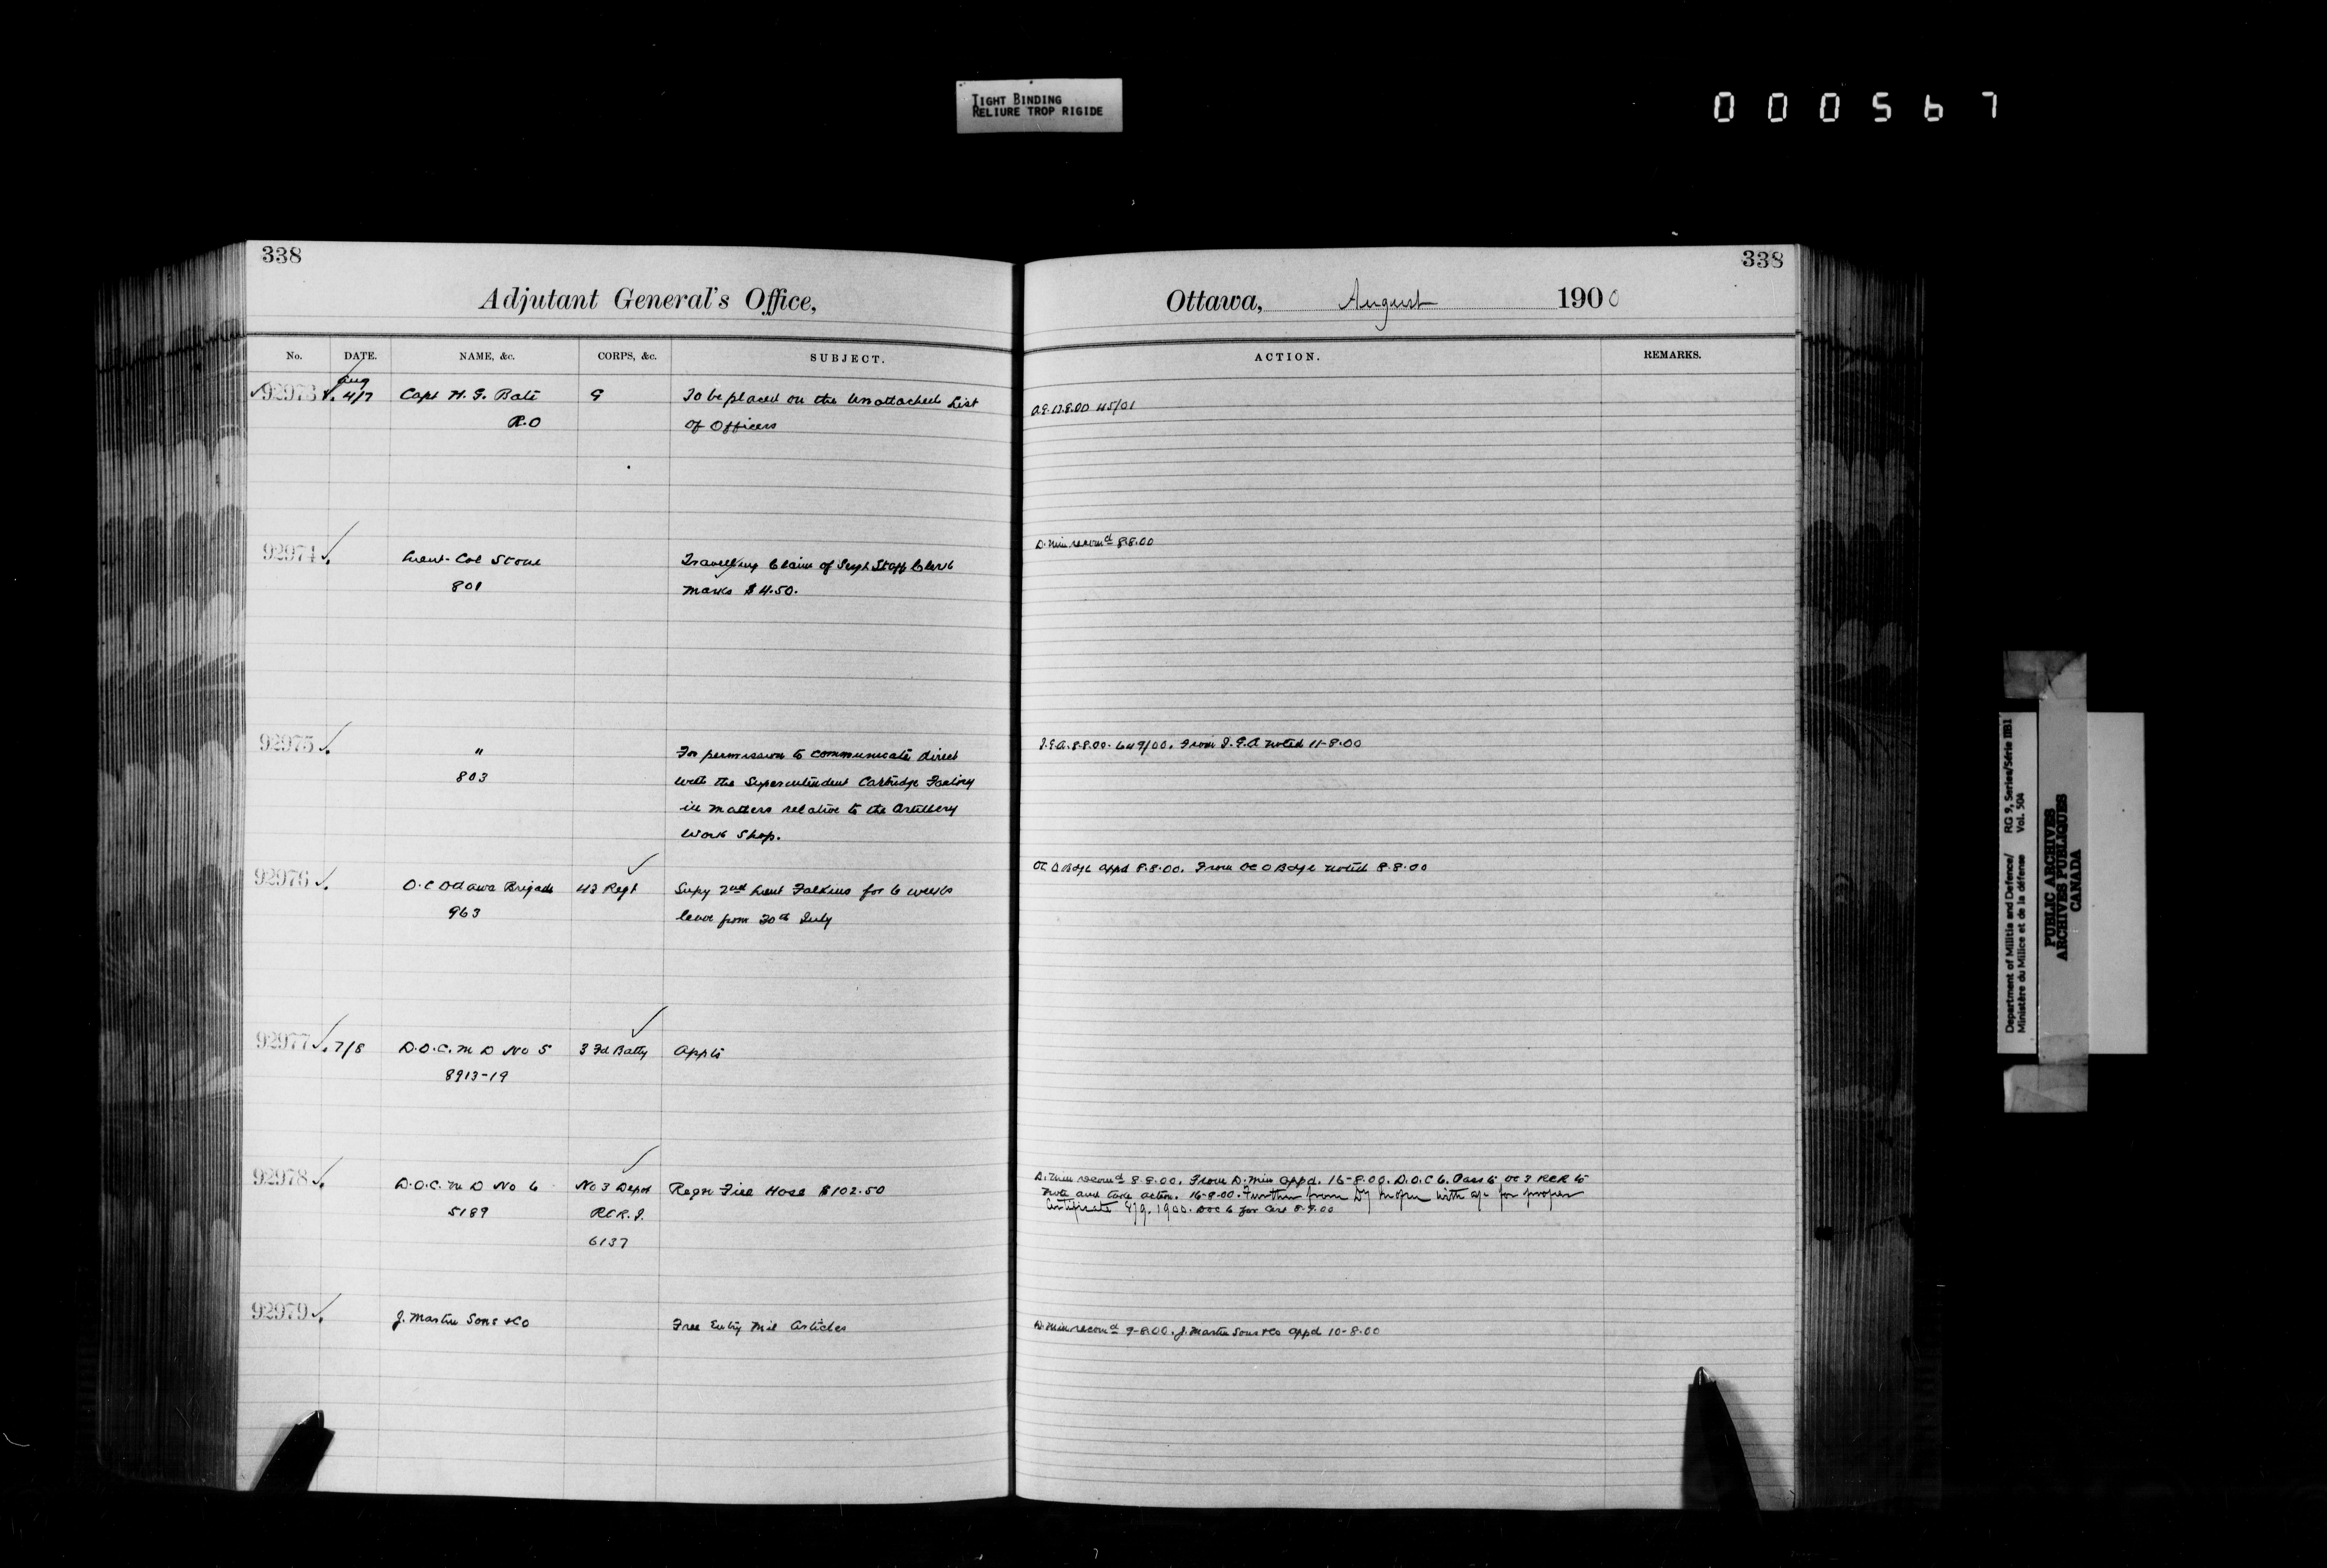 TIGHT BINDING
RELIURE TROP RIGIDE
000567
338
Adjutant General's Office,
No. DATE. NAME, &c. CORPS, &c. SUBJECT.
Aug
92973 4/7 Capt H. G. Bate G To be placed on the Unattached List
R.O of Officers
92974 Lieut-Col Stone Travelling Claim of Sergt Staff Clerk
801 Marks $4.50.
92975 " For permission to communicate direct
803 with the Superintendent Cartridge Factory
in matters relative to the Artillery
Work Shop.
92976 O.C Ottawa Brigade 43 Regt Supy 2nd Lieut Falkins for 6 weeks
963 leave from 30th July
92977 7/8 D.O.C. M D No 5 3 Fd Batty Appts
8913-19
92978 D.O.C. M D No 6 No 3 Depot Regn Fire Hose $102.50
5189 RCR.I.
6137
92979 J. Martin Sons & Co Free Entry Mil Articles
338
Ottawa, August 1900
ACTION. REMARKS.
45/01
D. Min recomd 8.8.00
8.8.00. 649/00. From noted 11-8.00
OC O Bdge appd 8.8.00. From OC O Bdge noted 8.8.00
D. Min recomd 8.8.00. From D. Min appd. 16-8.00. D.O.C 6. Pass to OC 3 RCR to
note and take action. 16-8-00. Further from with a/c for proper
Certificate 4/9.1900. DOC 6 for Cert 5.9.00
D. Min recomd 9-8.00. J. Martin Sons & Co appd 10-8.00
Department of Militia and Defence/ RG 9, Series/Série IIB1
Ministère du Milice et de la défense Vol. 504
PUBLIC ARCHIVES
ARCHIVES PUBLIQUES
CANADA